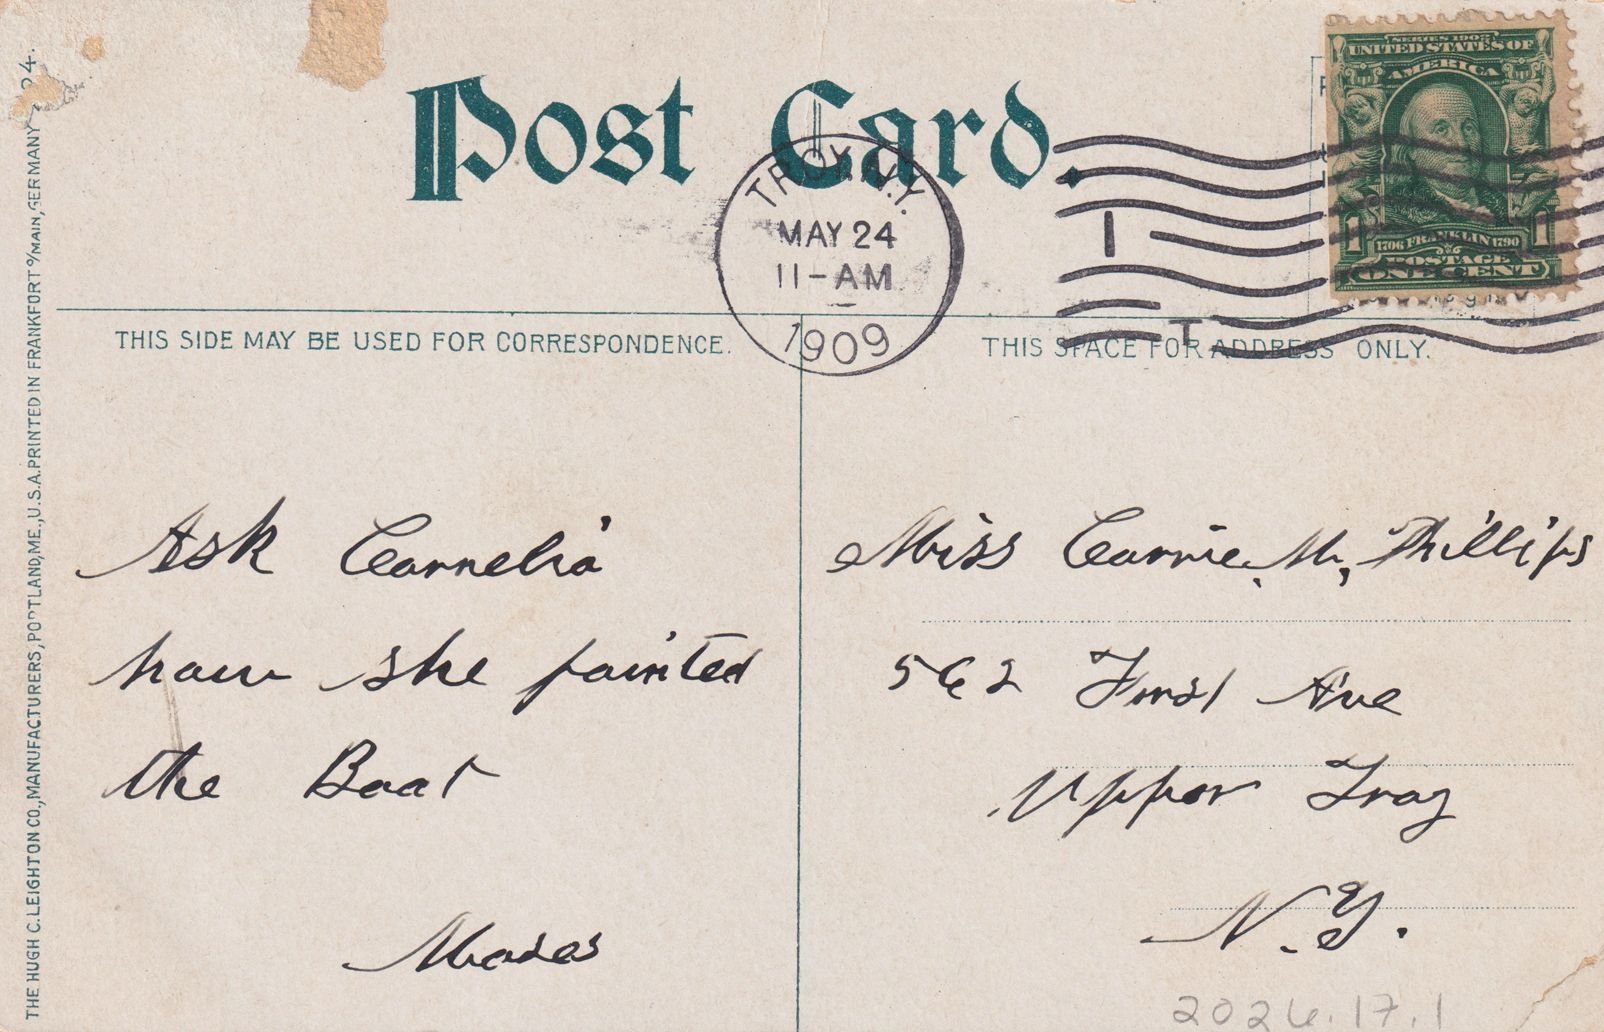 Post Card.
SERIES 1902
UNITED STATES OF
AMERICA
1706 FRANKLIN 1790
1 1
POSTAGE
ONE CENT
TROY, N.Y.
MAY 24
11-AM
1909
1
T
THIS SIDE MAY BE USED FOR CORRESPONDENCE.
THIS SPACE FOR ADDRESS ONLY.
Ask Cornelia
how she painted
the Boat
Miss Carrie. M, Phillips
562 First Ave
Upper Troy
N.Y.
2024.17.1
THE HUGH C. LEIGHTON CO., MANUFACTURERS, PORTLAND, ME., U.S.A. PRINTED IN FRANKFORT o/MAIN, GERMANY